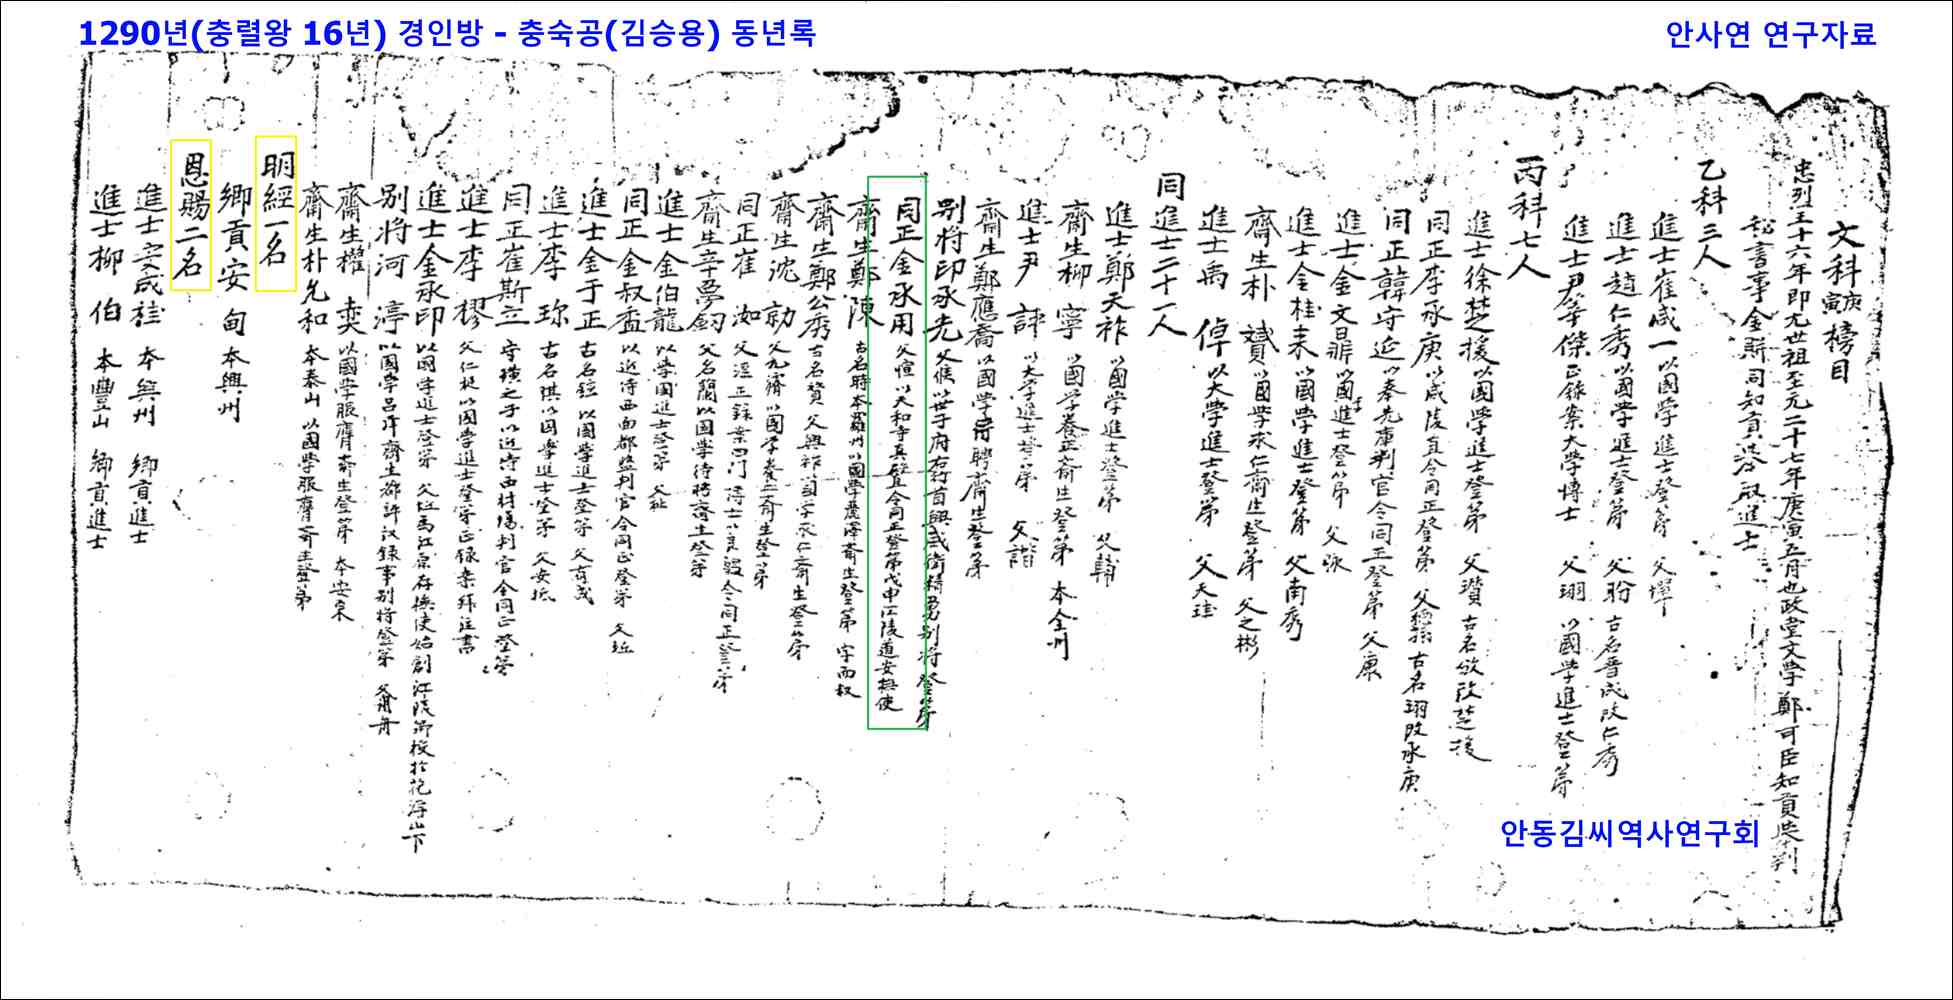 1290년(충렬왕 16년) 경인방 - 충숙공(김승용) 동년록
안사연 연구자료
文科庚寅榜目
忠烈王十六年即尤世祖至元二十七年庚寅五月也政堂文學鄭可臣知貢擧判
秘書事金賆同知貢擧取進士
乙科三人
進士崔咸一 以國学進士登第 父墠
進士趙仁秀 以國学進士登第 父肹 古名晋成改仁秀
進士尹莘傑 正錄案大学博士 父珝 以國学進士登第
丙科七人
進士徐楚援 以國学進士登第 父瓚 古名攽改楚援
同正李承庚 以咸陵直令同正登第 父 古名珝改承庚
同正韓守延 以奉先庫判官令同正登第 父康
進士金文鼎 以國進士登第 父咏
進士金桂耒 以國学進士登第 父南秀
齋生朴贇 以國学求仁齋生登第 父之彬
進士禹倬 以大学進士登第 父天珪
同進士二十一人
進士鄭天祚 以國学進士登第 父輔
齋生柳寧 以國学養正齋生登第 本全州
進士尹諀 以大学進士登第 父諧
齋生鄭應喬 以國学待聘齋生登第
别将印承光 父候 以世子府右行首興威衛精勇别将登第
同正金承用 父愃 以天和寺真殿直令同正登第戊申江陵道安撫使
齋生鄭陳 古名時 本羅州 以國学麗澤齋生登第 字而叔
齋生鄭公秀 古名贇 父興祚 國学求仁齋生登第
齋生沈 父九濟 以國学養正齋生登第
同正崔汝 父滢 正錄案四门博士 令同正登第
齋生辛夢鈞 父名蕳 以國学待聘齋生登第
進士金伯龍 以学國進士登第 父祉
同正金叔盃 以近侍西面都監判官令同正登第 父
進士金于正 古名鉉 以國学進士登第 父有成
進士李珎 古名琪 以國学進士登第 父安
同正崔斯立 守璜之子 以近侍西材塲判官令同正登第
進士李樛 父仁挺 以國学進士登第 正錄案拜注書
進士金承印 以國学進士登第 父 爲江原存撫使始創江陵鄕校於花浮山下
别将河渟 以國学 齋生都評議錄事别将登第
齋生權奕 以國学服膺齋生登第 本安東
齋生朴允和 本泰山 以國学服膺齋生登第
明經一名
鄕貢安甸 本興州
恩賜二名
進士安成桂 本興州 鄕貢進士
進士柳伯 本豐山 鄕貢進士
안동김씨역사연구회